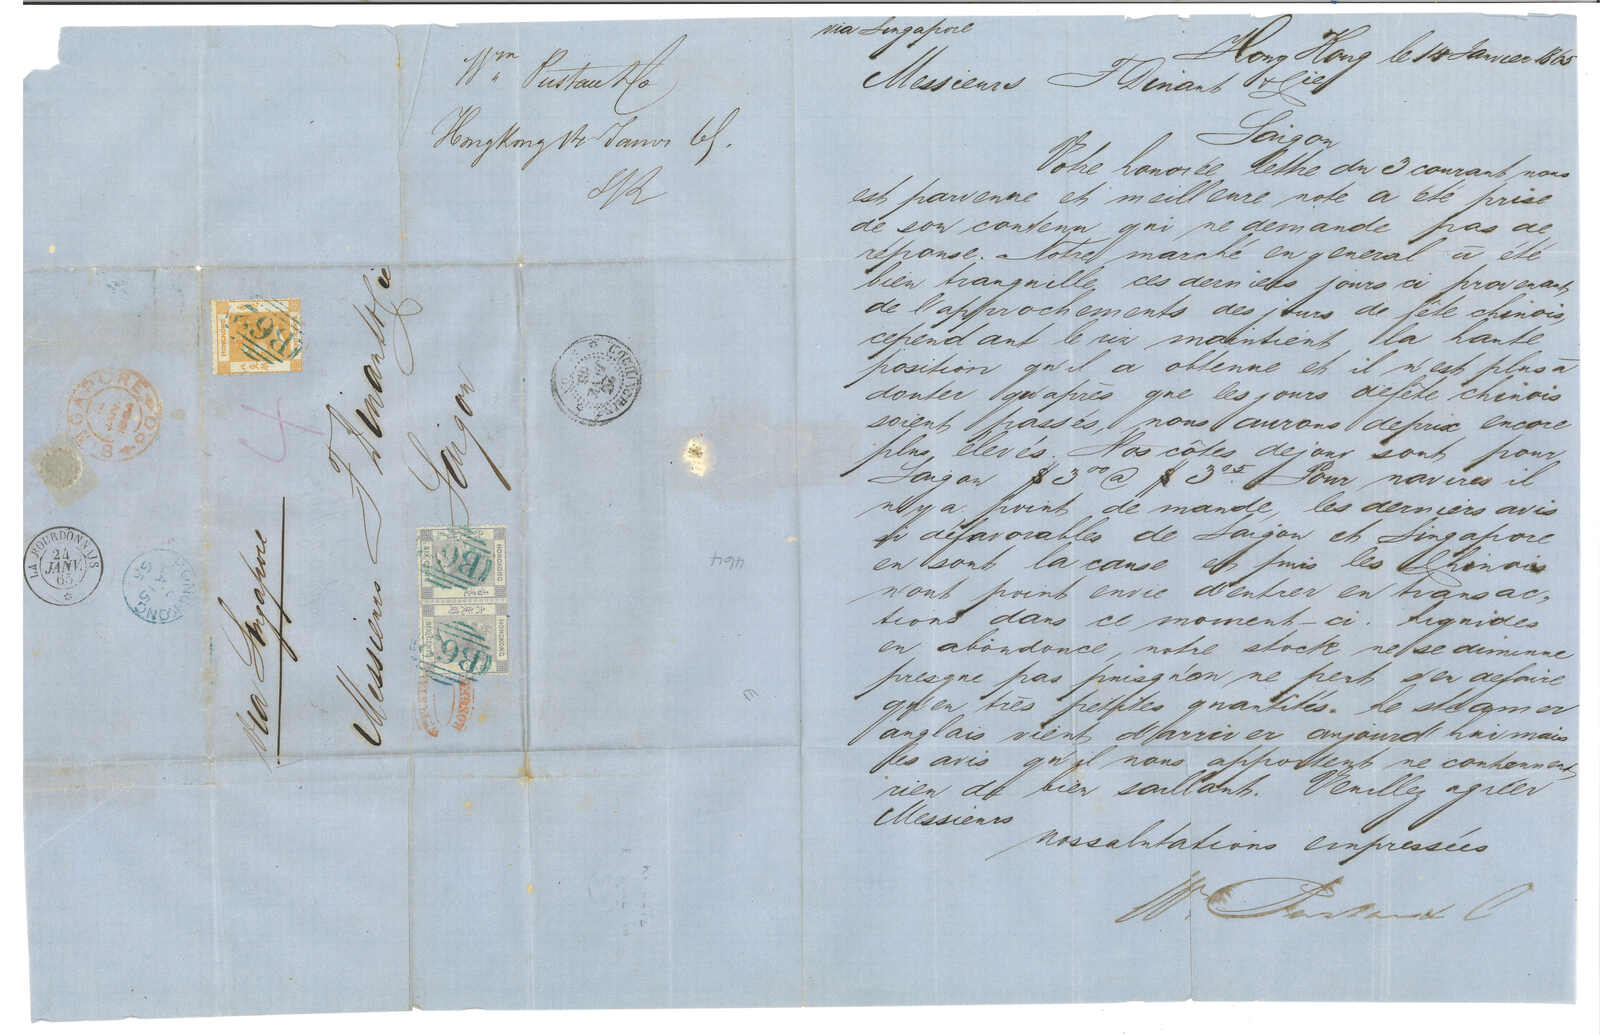 via Singapore
Hong Kong le 14 Janvier 1865
Messieurs F Dinant & Cie
Saigon
Votre honorée lettre du 3 courant nous
est parvenue et meilleure note a été prise
de son contenu qui ne demande pas de
réponse. Notre marché en general à été
bien tranquille ces derniers jours ci provenant
de l'approchements des jours de fête chinois,
cependant le riz maintient la haute
position qu'il a obtenue et il n'est plus à
douter qu'après que les jours defête chinois
soient passés, nous aurons deprix encore
plus élevés. Nos côtes dejour sont pour
Saigon $ 3 00 @ $ 3 05. Pour navires il
n'y a point de mande, les derniers avis
si défavorables de Saigon et Singapore
en sont la cause et puis les Chinois
n'ont point envie d'entrer en transac,
tions dans ce moment-ci. Liquides
en abondonce, notre stock ne se diminue
presque pas puisqu'on ne peut s'en defaire
qu'en très petites quantités. Le steamer
anglais vient d'arriver aujourd'hui mais
les avis qu'il nous apportent ne contiennent
rien de bien saillant. Veuillez agréer
Messieurs
nos salutations empressées
Wm Pustau & C
Wm Pustau & Co
HongKong 14 Janvr 65.
Messieurs F Dinant & Cie
Saigon
via Singapore
4
464
HONGKONG
B62
HONGKONG
B62
HONGKONG
B62
SINGAPORE
LA BOURDONNAIS
24
JANV.
65
HONGKONG
COCHINCHINE